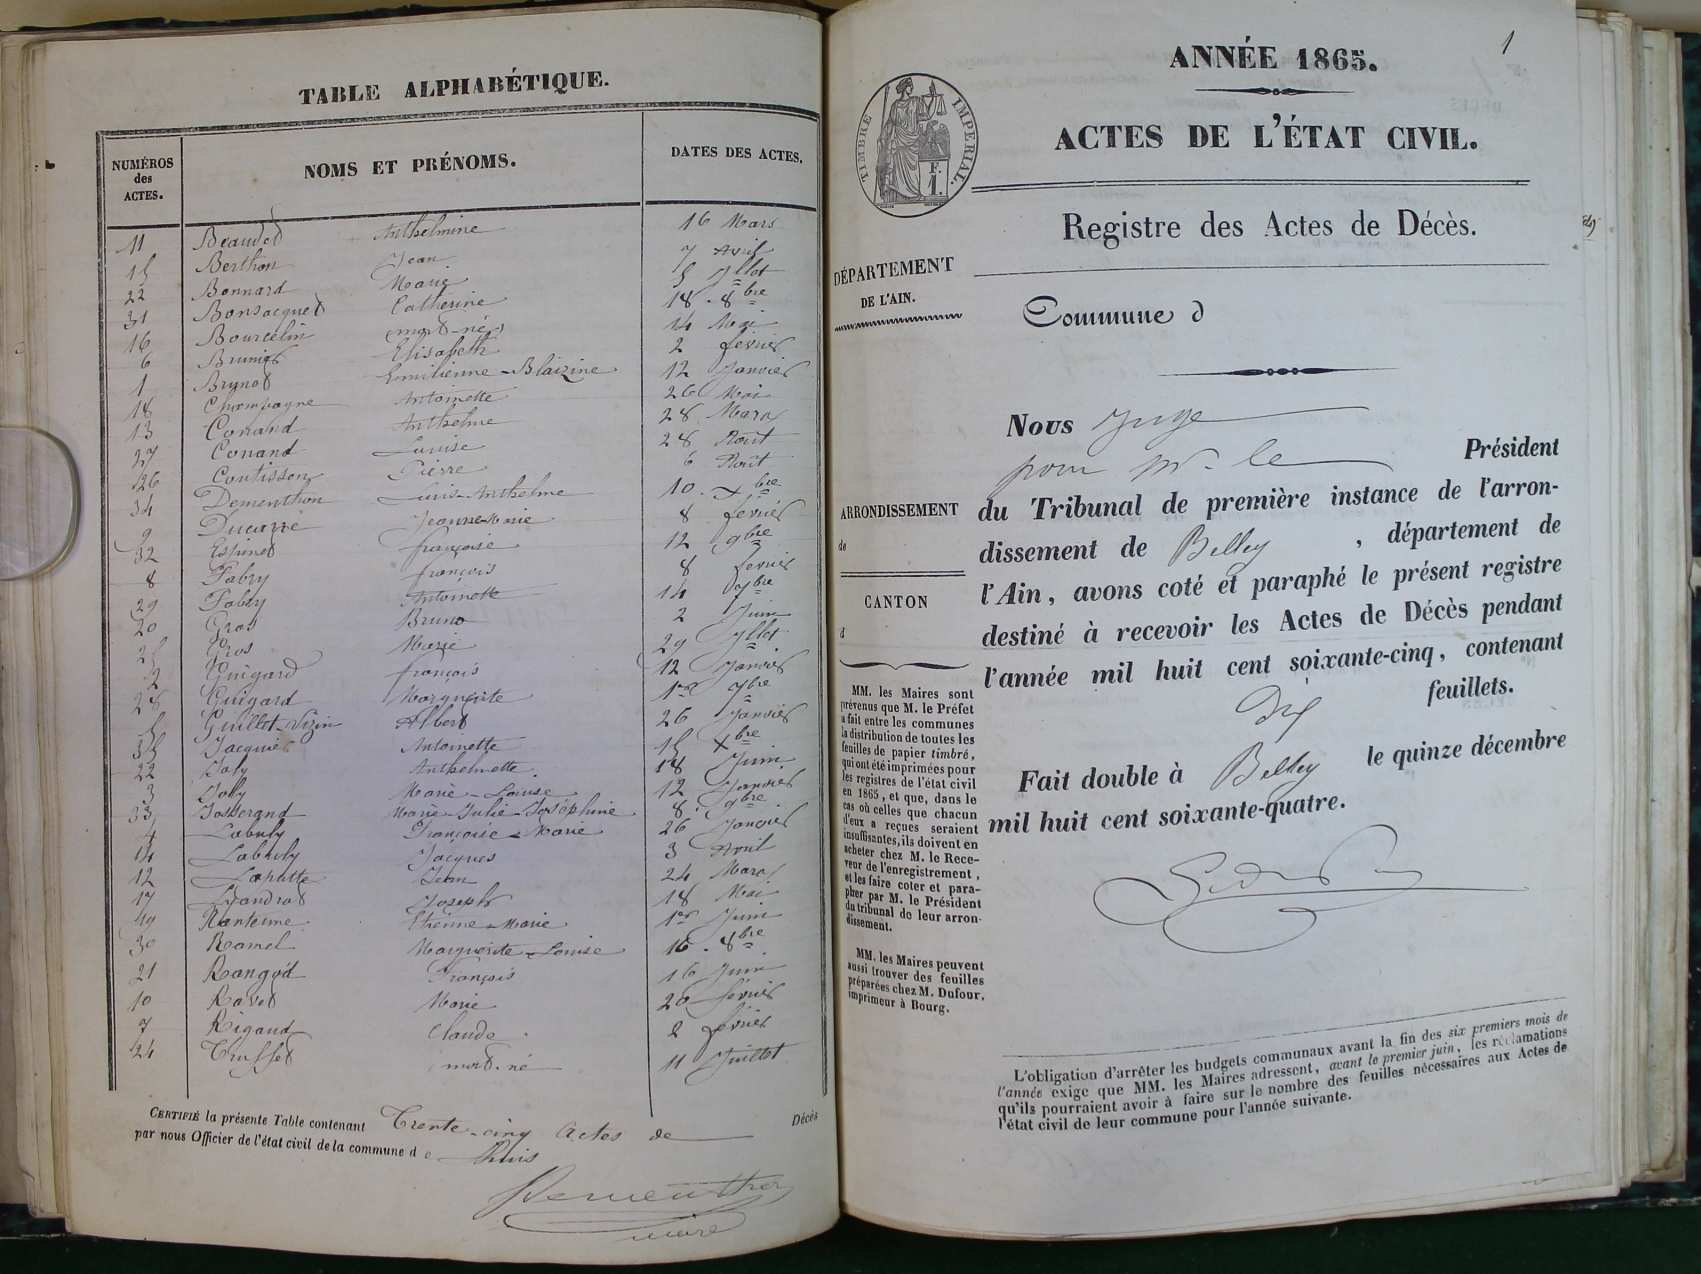 TABLE ALPHABÉTIQUE.
NUMÉROS des ACTES.
NOMS ET PRÉNOMS.
DATES DES ACTES.
11 Beaudet Anthelmine 16 Mars
15 Berthon Jean 7 Avril
22 Bonnard Marie 5 Jllet
31 Bonsacquet Catherine 18 . 8bre
16 Bourcelin mort-né 14 Mai
6 Brunier Elisabeth 2 février
1 Brynod Emilienne-Blaizine 12 Janvier
18 Champagne Antoinette 26 Mai
13 Conand Anthelme 28 Mars
27 Conand Louise 28 Août
26 Coutisson Pierre 6 Août
34 Dementhon Louis-Anthelme 10. Xbre
9 Ducarre Jeanne-Marie 8 février
32 Espinet françoise 12 9bre
8 Fabry françois 8 fevrier
29 Fabry Antoinette 14 7bre
20 Gros Bruno 2 Juin
25 Gros Marie 29 Jllet
2 Guigard françois 12 Janvier
28 Guigard Marguerite 1er 7bre
5 Guillot-Vizin Albert 26 Janvier
35 Jacquier Antoinette 15 Xbre
22 Joly Anthelmette. 18 Juin
3 Joly Marie-Louise 12 Janvier
33 Josserand Marie-Julie-Joséphine 8. 9bre
4 Labully Françoise-Marie 26 Janvier
14 Labully Jacques 3 Avril
12 Laplatte Jean 24 Mars
17 Joseph 18 Mai
19 Nanterme Etienne-Marie 1er Juin
30 Ramel Marguerite-Louise 16. 8bre
21 Rangod François 16 Juin
10 Ravet Marie 20 février
7 Rigaud Claude 2 février
24 Truffet mort-né 11 Juillet
CERTIFIÉ la présente Table contenant Trente-cinq Actes de Décès
par nous Officier de l'état civil de la commune de Lhuis
Dementhon
maire
1
ANNÉE 1865.
TIMBRE IMPÉRIAL.
F.
1.
ACTES DE L'ÉTAT CIVIL.
Registre des Actes de Décès.
DÉPARTEMENT
DE L'AIN.
Commune d
Nous Juge
pour Mr le Président
du Tribunal de première instance de l'arron-
dissement de Belley, département de
l'Ain, avons coté et paraphé le présent registre
destiné à recevoir les Actes de Décès pendant
l'année mil huit cent soixante-cinq, contenant
Dix feuillets.
Fait double à Belley le quinze décembre
mil huit cent soixante-quatre.
ARRONDISSEMENT
de
CANTON
d
MM. les Maires sont
prévenus que M. le Préfet
a fait entre les communes
la distribution de toutes les
feuilles de papier timbré,
qui ont été imprimées pour
les registres de l'état civil
en 1865, et que, dans le
cas où celles que chacun
d'eux a reçues seraient
insuffisantes, ils doivent en
acheter chez M. le Rece-
veur de l'enregistrement,
et les faire coter et para-
pher par M. le Président
du tribunal de leur arron-
dissement.
MM. les Maires peuvent
aussi trouver des feuilles
préparées chez M. Dufour,
imprimeur à Bourg.
L'obligation d'arrêter les budgets communaux avant la fin des six premiers mois de
l'année exige que MM. les Maires adressent, avant le premier juin, les réclamations
qu'ils pourraient avoir à faire sur le nombre des feuilles nécessaires aux Actes de
l'état civil de leur commune pour l'année suivante.